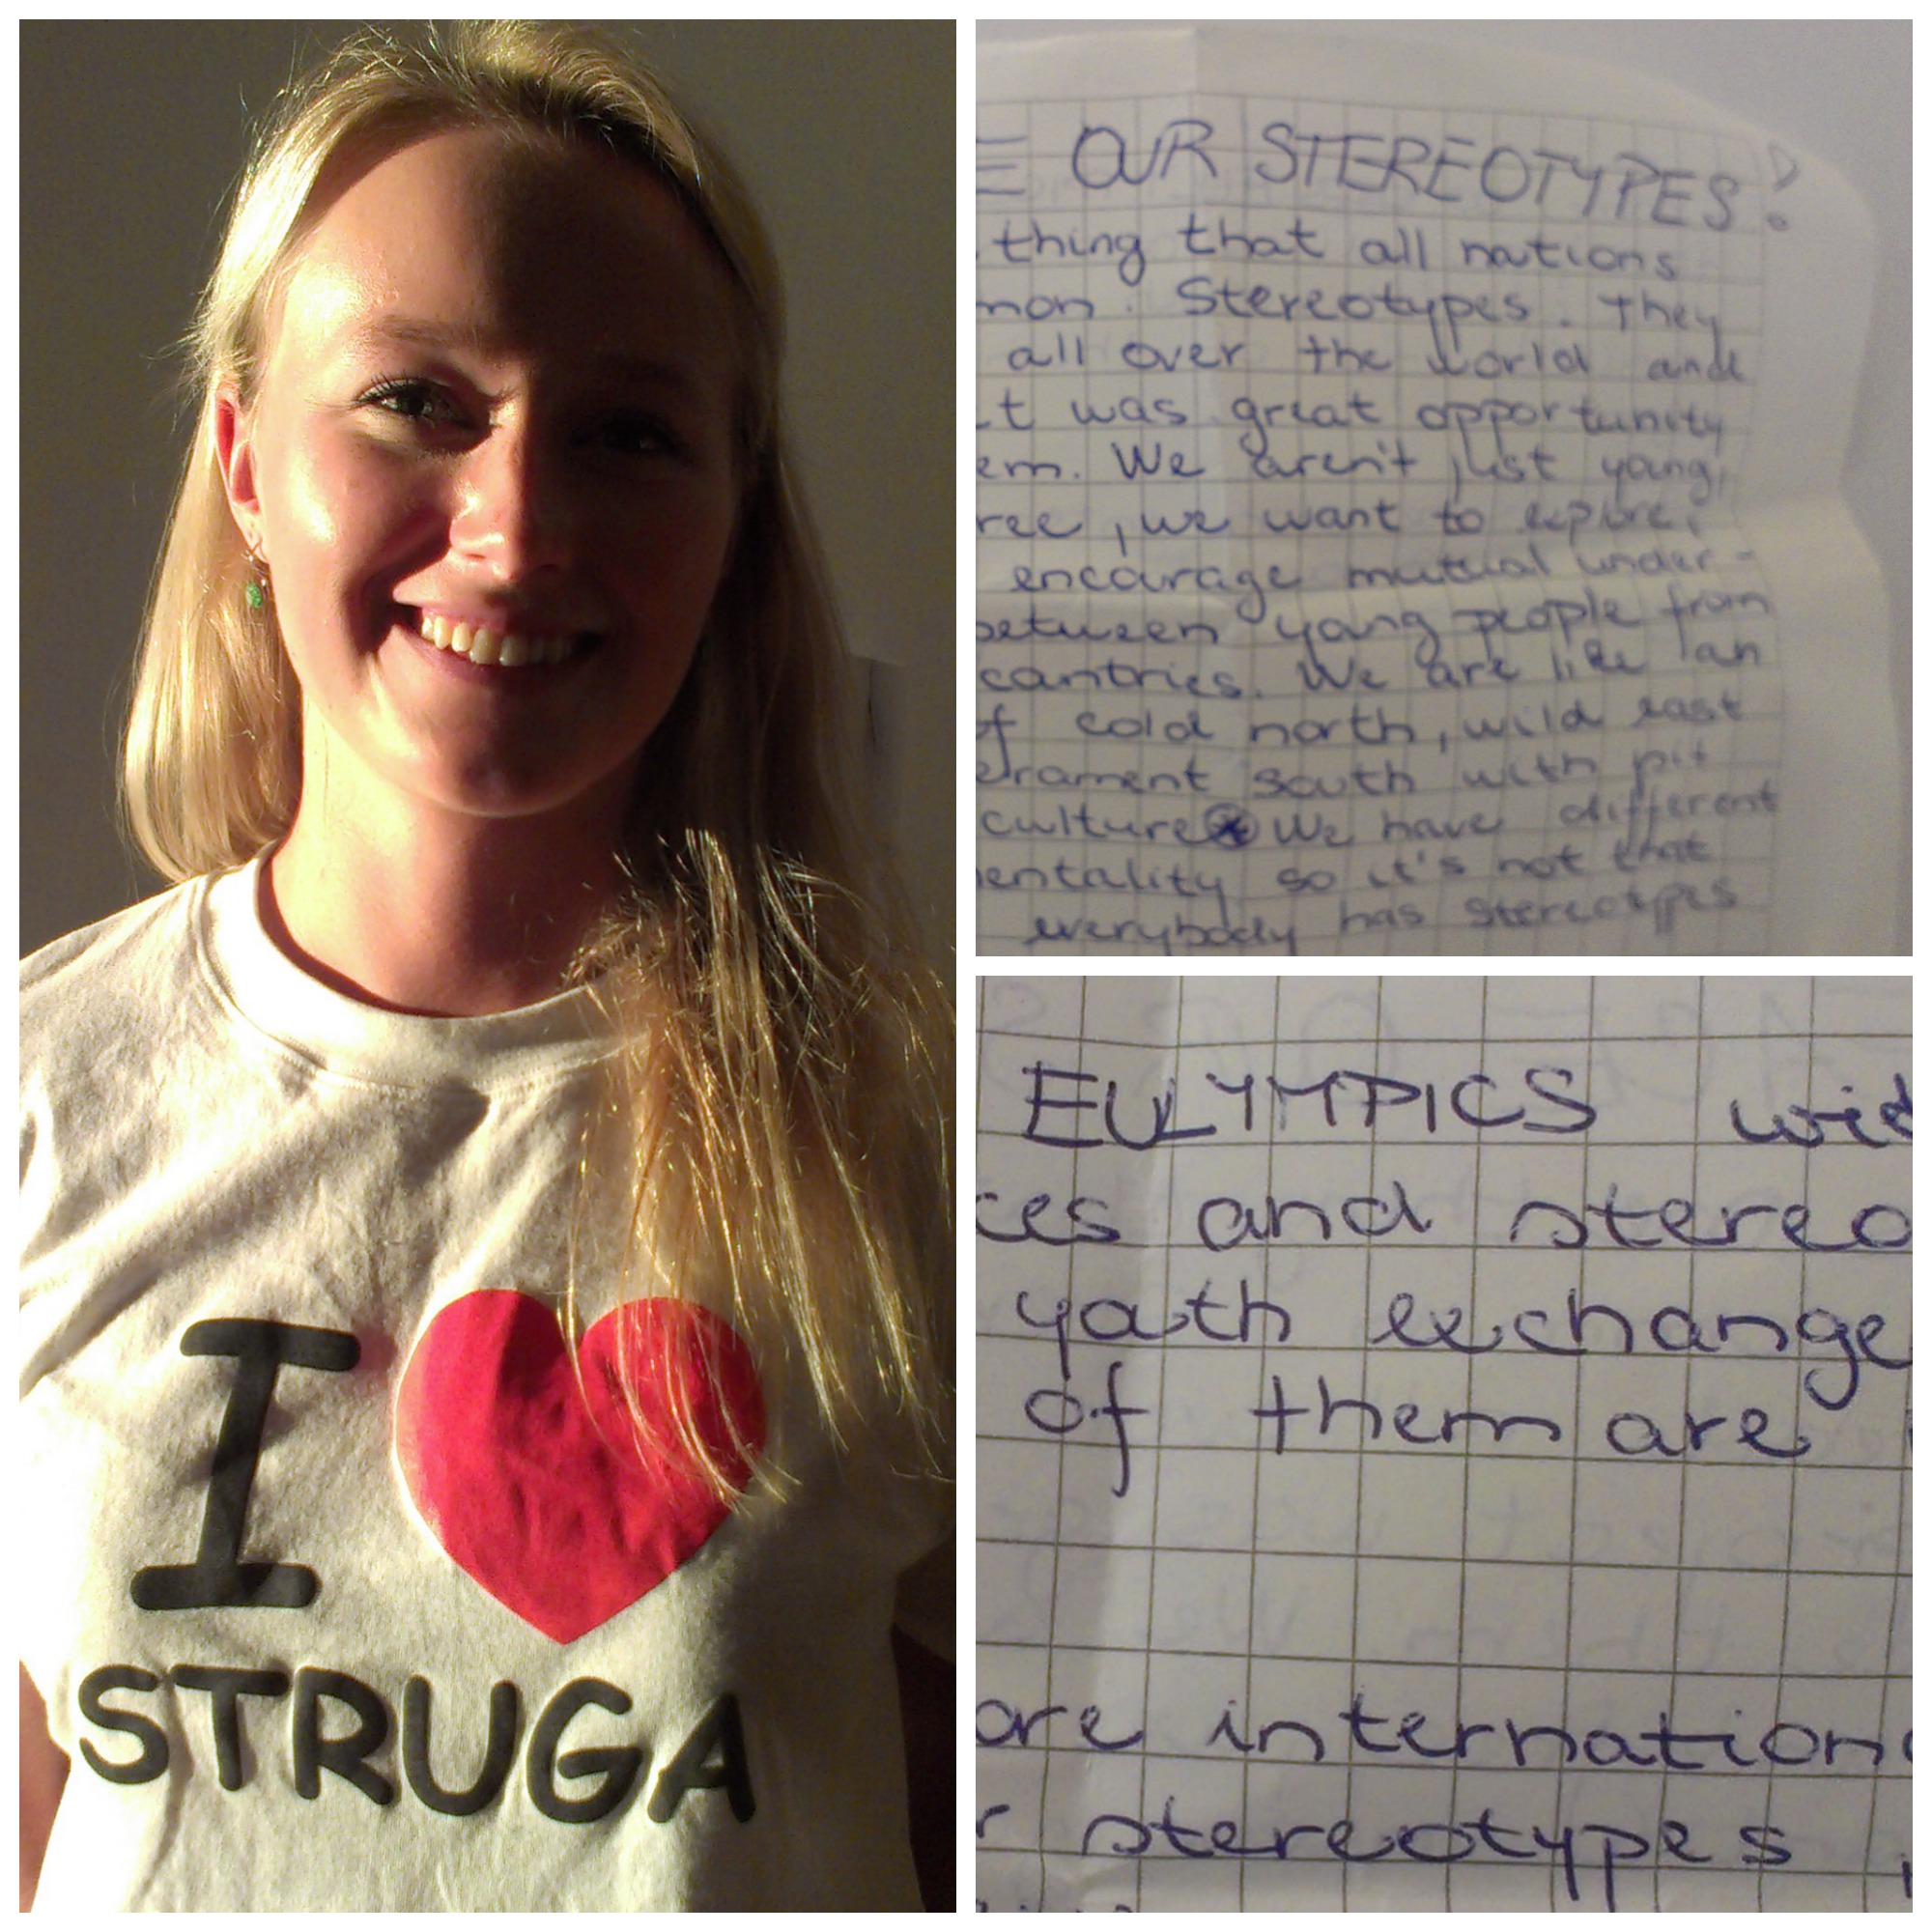 I
STRUGA
E OUR STEREOTYPES?
thing that all nations
mon. Stereotypes. They
all over the world and
t was great opportunity
em. We aren't just young,
ree, we want to explore,
encourage mutual under-
between young people from
countries. We are like an
of cold north, wild east
erament south with pit
culture We have different
entality so it's not that
everybody has stereotypes
EULYMPICS wid
ces and stereo
youth exchange
of them are
ore internation
r stereotypes